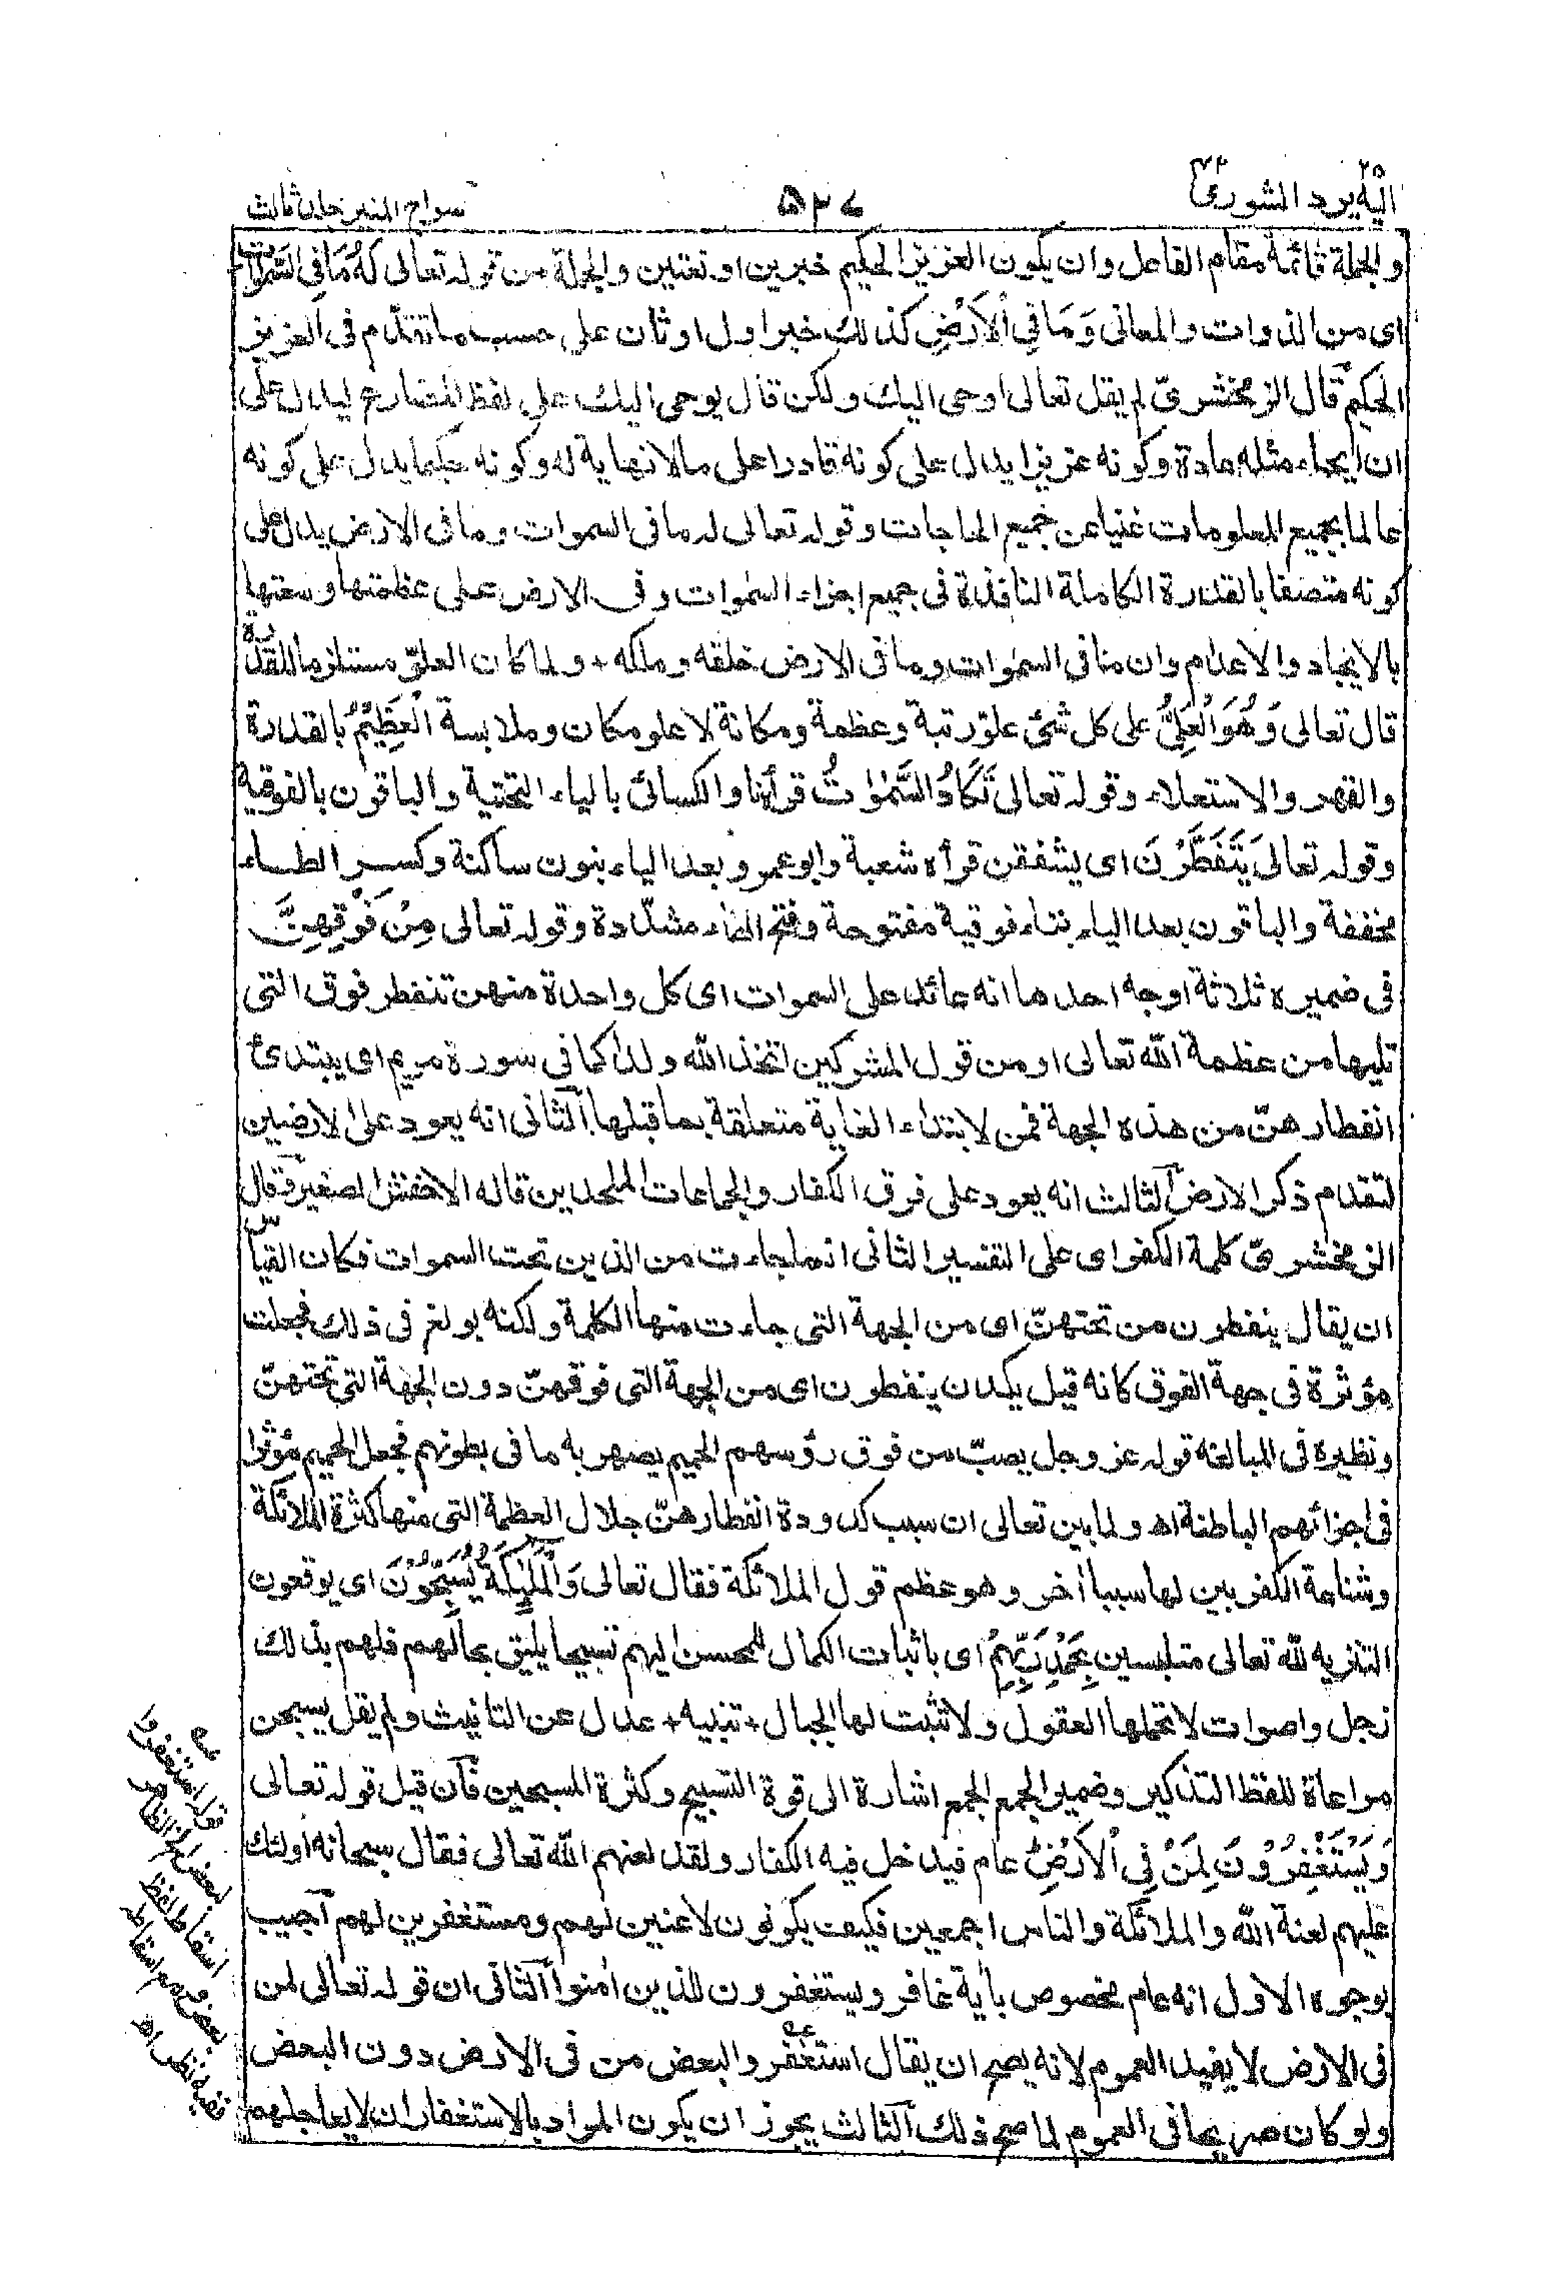 اليه يرد ٢٥ الشورى ٤٢
٥٢٧
سراج المنير جلد ثالث
والجملة قائمة مقام الفاعل وان يكون العزيز الحكيم خبرين او نعتين والجملة من قوله تعالى لَهُ مَا فِي السَّمٰوٰتِ
اى من الذوات والمعانى وَمَا فِي الْاَرْضِ كذلك خبر اول او ثان على حسب ما تقدم فى العزيز
الحكيم قال الزمخشرىّ لم يقل تعالى اوحى اليك ولكن قال يوحى اليك على لفظ المضارع ليدل على
ان ايحاء مثله عادة وكونه عزيزا يدل على كونه قادرا على مالا نهاية له وكونه حكيما يدل على كونه
عالما بجميع المعلومات غنيا عن جميع الحاجات وقوله تعالى له ما فى السموات وما فى الارض يدل على
كونه متصفا بالقدرة الكاملة النافذة فى جميع اجزاء السمٰوات وفى الارض على عظمتها وسعتها
بالايجاد والاعدام وان ما فى السمٰوات وما فى الارض خلقه وملكه + ولما كان العلوّ مستلزما للقدرة
قال تعالى وَهُوَ الْعَلِيُّ على كل شئ علوّ رتبة وعظمة ومكانة لا علو مكان وملابسة الْعَظِيْمُ بالقدرة
والقهر والاستعلاء وقوله تعالى تَكَادُ السَّمٰوٰتُ قرأ نافع والكسائى بالياء التحتية والباقون بالفوقية
وقوله تعالى يَتَفَطَّرْنَ اى يشققن قرأه شعبة وابو عمرو بعد الياء بنون ساكنة وكسر الطاء
مخففة والباقون بعد الياء بتاء فوقية مفتوحة وفتح الطاء مشددة وقوله تعالى مِنْ فَوْقِهِنَّ
فى ضميره ثلاثة اوجه احدها انه عائد على السموات اى كل واحدة منهن تنفطر فوق التى
تليها من عظمة الله تعالى او من قول المشركين اتخذ الله ولدا كما فى سورة مريم اى يبتدئ
انفطارهنّ من هذه الجهة فمن لابتداء الغاية متعلقة بما قبلها الثانى انه يعود على الارضين
لتقدم ذكر الارض الثالث انه يعود على فرق الكفار والجماعات الملحدين قاله الاخفش الصغير وقال
الزمخشرىّ كلمة الكفر اى على التفسير الثانى انما جاءت من الذين تحت السموات فكان القياس
ان يقال ينفطرن من تحتهنّ اى من الجهة التى جاءت منها الكلمة ولكنه بولغ فى ذلك فجعلت
مؤثرة فى جهة الفوق كانه قيل يكدن ينفطرن اى من الجهة التى فوقهنّ دون الجهة التى تحتهنّ
ونظيره فى المبالغة قوله عز وجل يصبّ من فوق رؤسهم الحميم يصهر به ما فى بطونهم فجعل الحميم مؤثرا
فى اجزائهم الباطنة اه ولما بين تعالى ان سبب كدودة انفطارهنّ جلال العظمة التى منها كثرة الملائكة
وشناعة الكفر بين لها سببا اخر وهو عظم قول الملائكة فقال تعالى وَالْمَلٰٓئِكَةُ يُسَبِّحُوْنَ اى يوقعون
التنزيه لله تعالى متلبسين بِحَمْدِ رَبِّهِمْ اى باثبات الكمال للمحسن اليهم تسبيحا يليق بحالهم فلهم بذلك
زجل واصوات لا تحملها العقول ولا تثبت لها الجبال + تنبيه + عدل عن التانيث ولم يقل يسبحن
مراعاة للفظ التذكير وضمير الجمع الجمع اشارة الى قوة التسبيح وكثرة المسبحين فان قيل قوله تعالى
وَيَسْتَغْفِرُوْنَ لِمَنْ فِي الْاَرْضِ عام فيدخل فيه الكفار ولقد لعنهم الله تعالى فقال سبحانه اولئك
عليهم لعنة الله والملائكة والناس اجمعين فكيف يكونون لاعنين لهم ومستغفرين لهم اجيب
بوجوه الاول انه عام مخصوص باٰية غافر ويستغفرون للذين اٰمنوا الثانى ان قوله تعالى لمن
فى الارض لا يفيد العموم لانه يصح ان يقال استغفر والبعض من فى الارض دون البعض
ولو كان صريحا فى العموم لما صح ذلك الثالث يجوز ان يكون المراد بالاستغفار ان لا يعاجلهم
قوله استغفروا
لبعض الخ الظاهر
اسقاط لفظ
بعض ومع اسقاطه
ففيه نظر اه